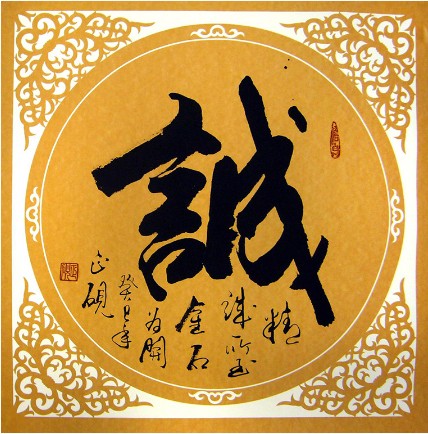 誠
精
誠所至
金石
为開
癸巳年
硯